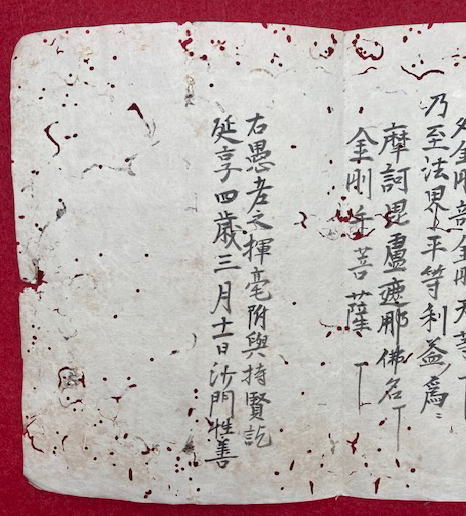 外金剛部金剛天等丁
乃至法界平等利益爲〻
摩訶毘盧遮那佛名丁
金剛手菩薩丁
右愚老之揮毫附與持賢訖
延享四歳三月十一日沙門性善